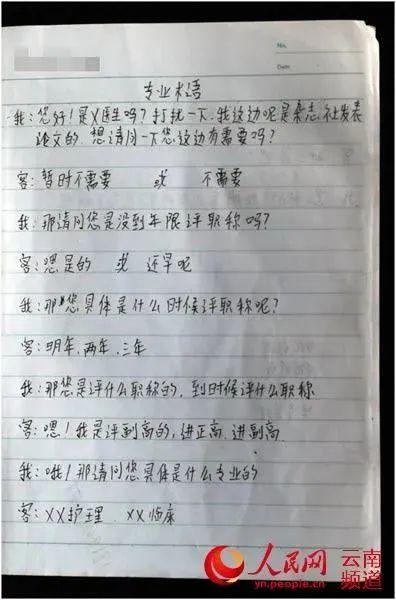 No.
Date
专业术语
我：您好！是X医生吗？打扰一下，我这边呢是杂志社发表
论文的，想请问一下您这边有需要吗？
客：暂时不需要 或 不需要
我：那请问您是没到年限评职称吗？
客：嗯是的 或 还早呢
我：那您具体是什么时候评职称呢？
客：明年、两年、三年
我：那您是评什么职称的，到时候评什么职称
客：嗯！我是评副高的，进正高、进副高
我：哦！那请问您具体是什么专业的
客：XX护理 XX临床
人民网 云南频道
yn.people.cn